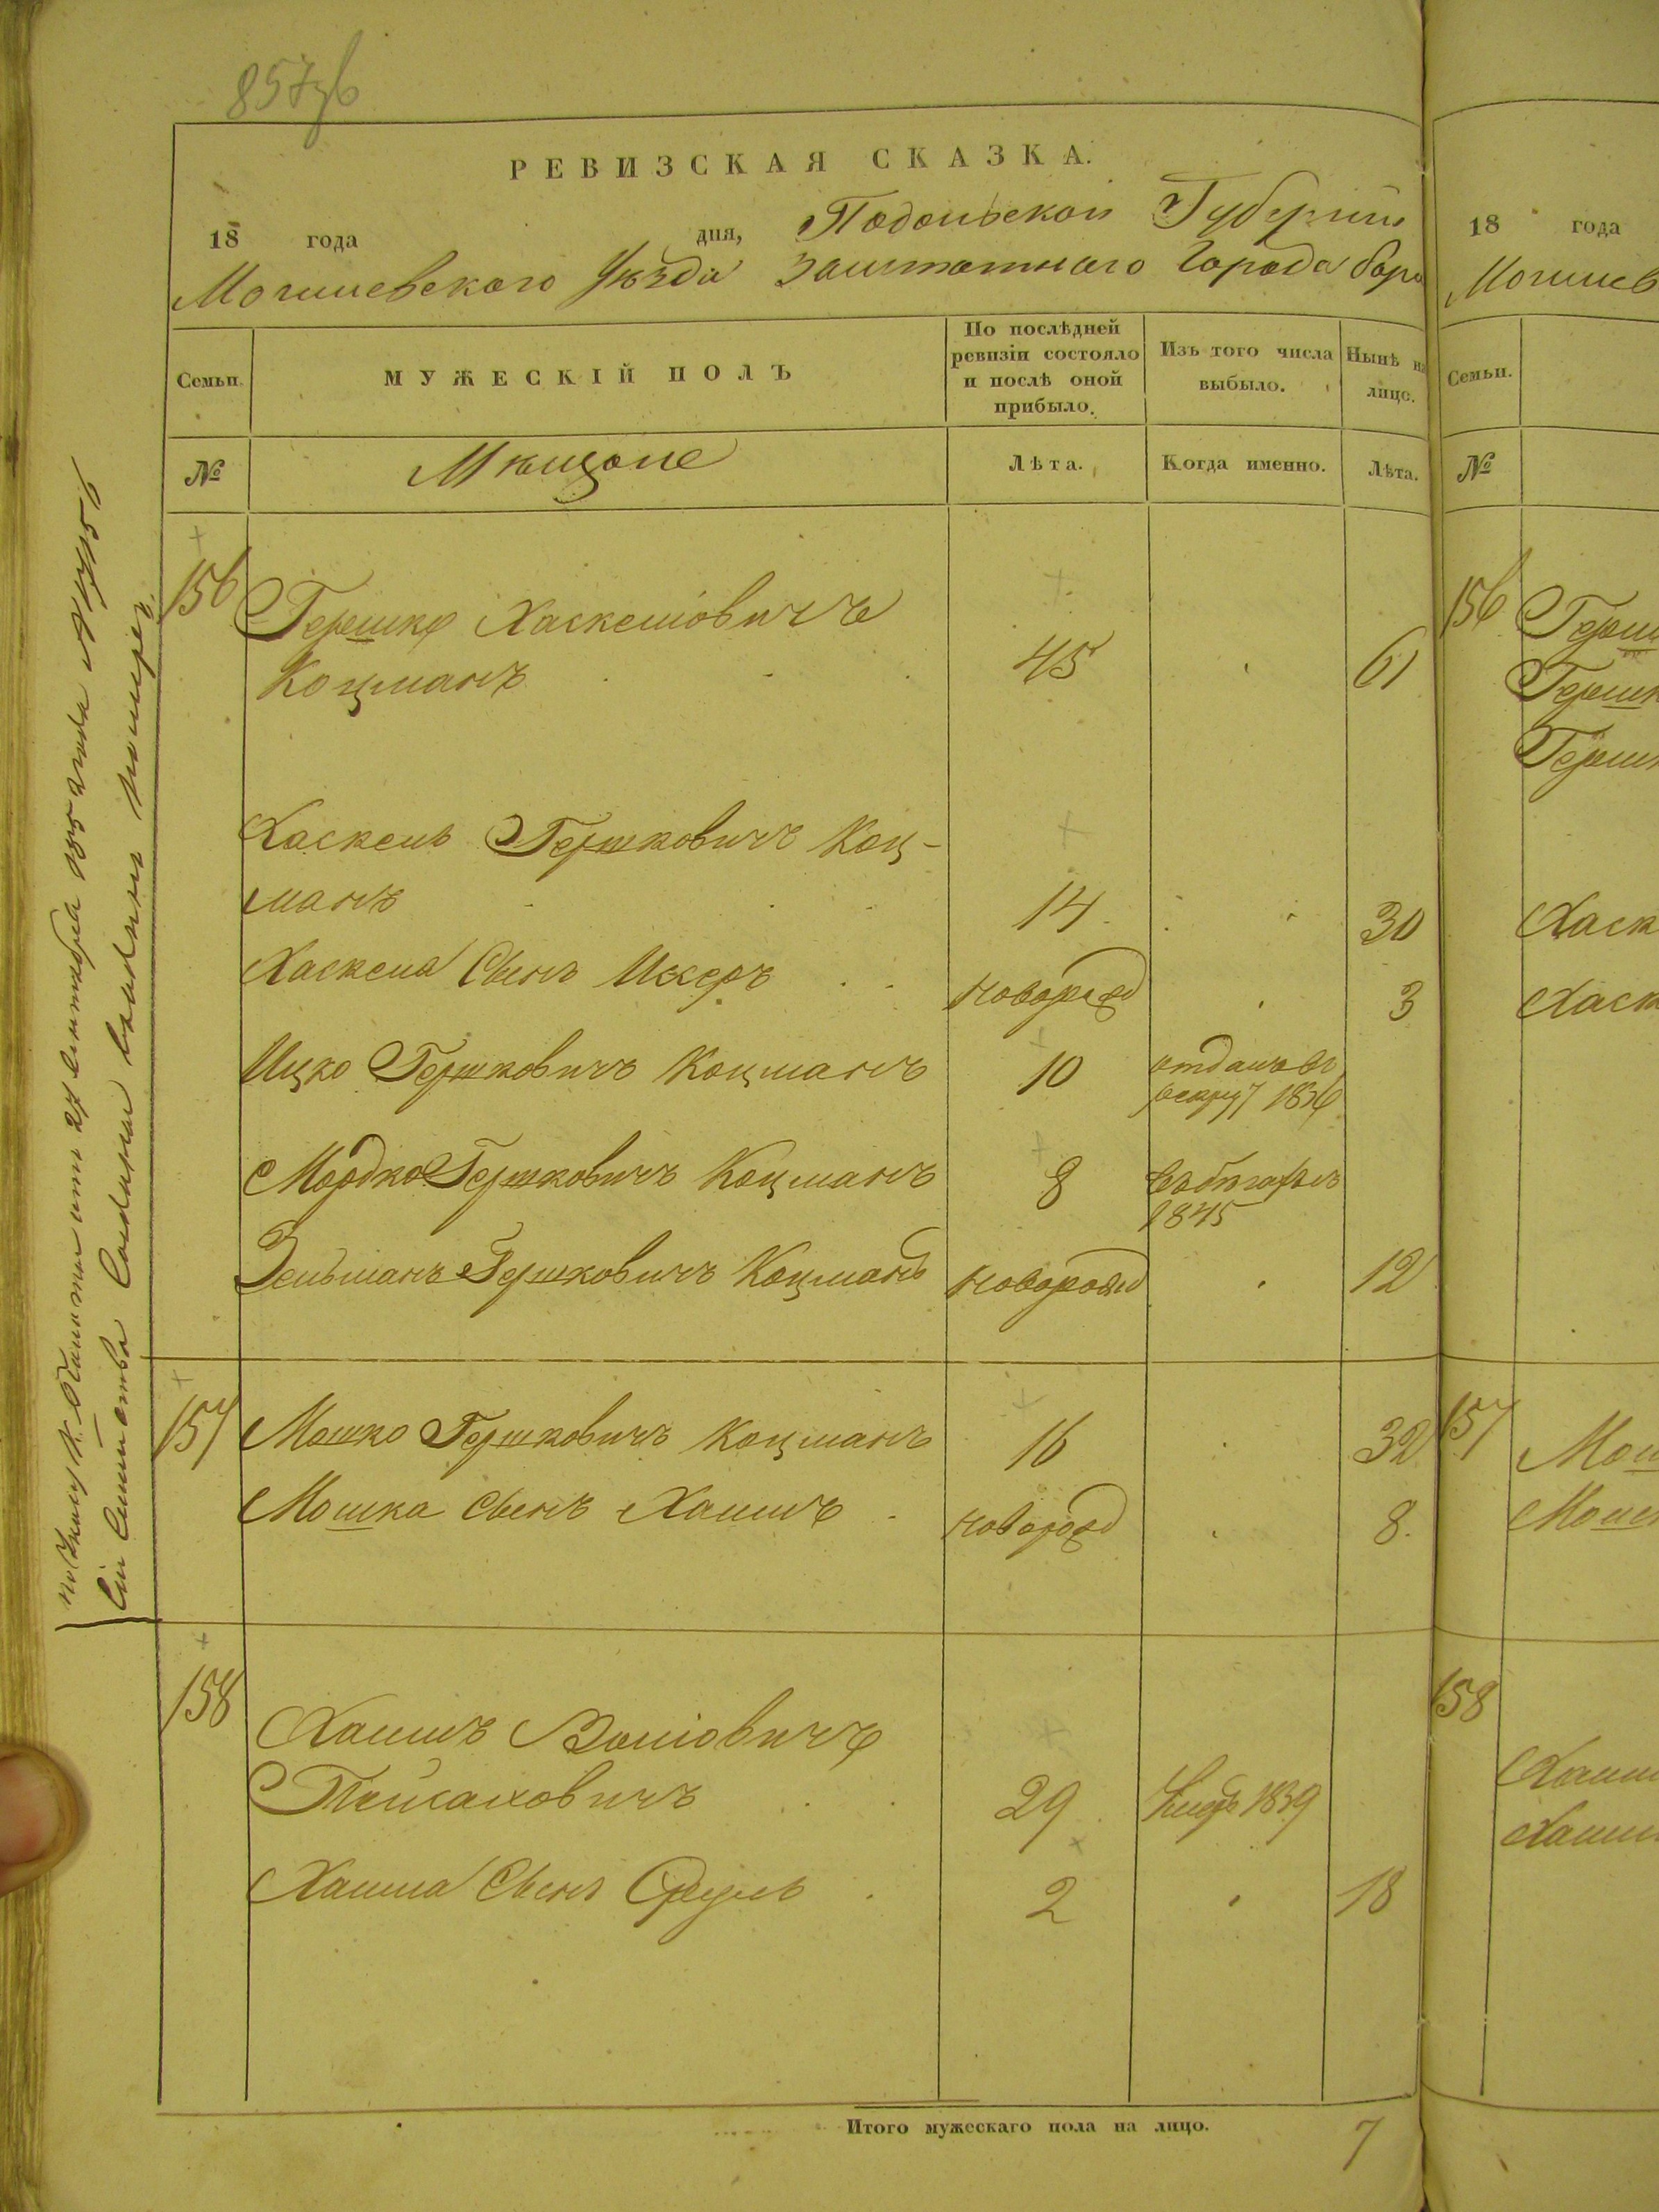 857 об
РЕВИЗСКАЯ СКАЗКА.
18 года дня, Подольской Губернии
Могилевского Уѣзда Заштатного Города Бара
Семьи. МУЖЕСКІЙ ПОЛЪ По послѣдней ревизіи состояло и послѣ оной прибыло. Изъ того числа выбыло. Нынѣ на лицо.
№ Мѣщане Лѣта. Когда именно. Лѣта.
156 Гершко Хаскелiовичъ
Коцманъ 45 61
Хаскель Гершковичъ Коц-
манъ 14 30
Хаскеля Сынъ новорожд 3
Ицко Гершковичъ Коцманъ 10 отданъ въ
рекруты 1836
Мордко Гершковичъ Коцманъ 8 въ бѣгахъ съ
1845
Зельманъ Гершковичъ Коцманъ новорожд 12
157 Мошко Гершковичъ Коцманъ 16 32
Мошка Сынъ Хаимъ новорожд 8.
158 Хаимъ Волiовичъ
Пейсаховичъ 29 Умеръ 1839
Хаима Сынъ Сруль 2 18
Итого мужескаго пола на лицо. 7
по Указу К. Палаты отъ 27 Сентября
Сіи Семейства
18 года
Могилев
Семьи.
№
156
157
158